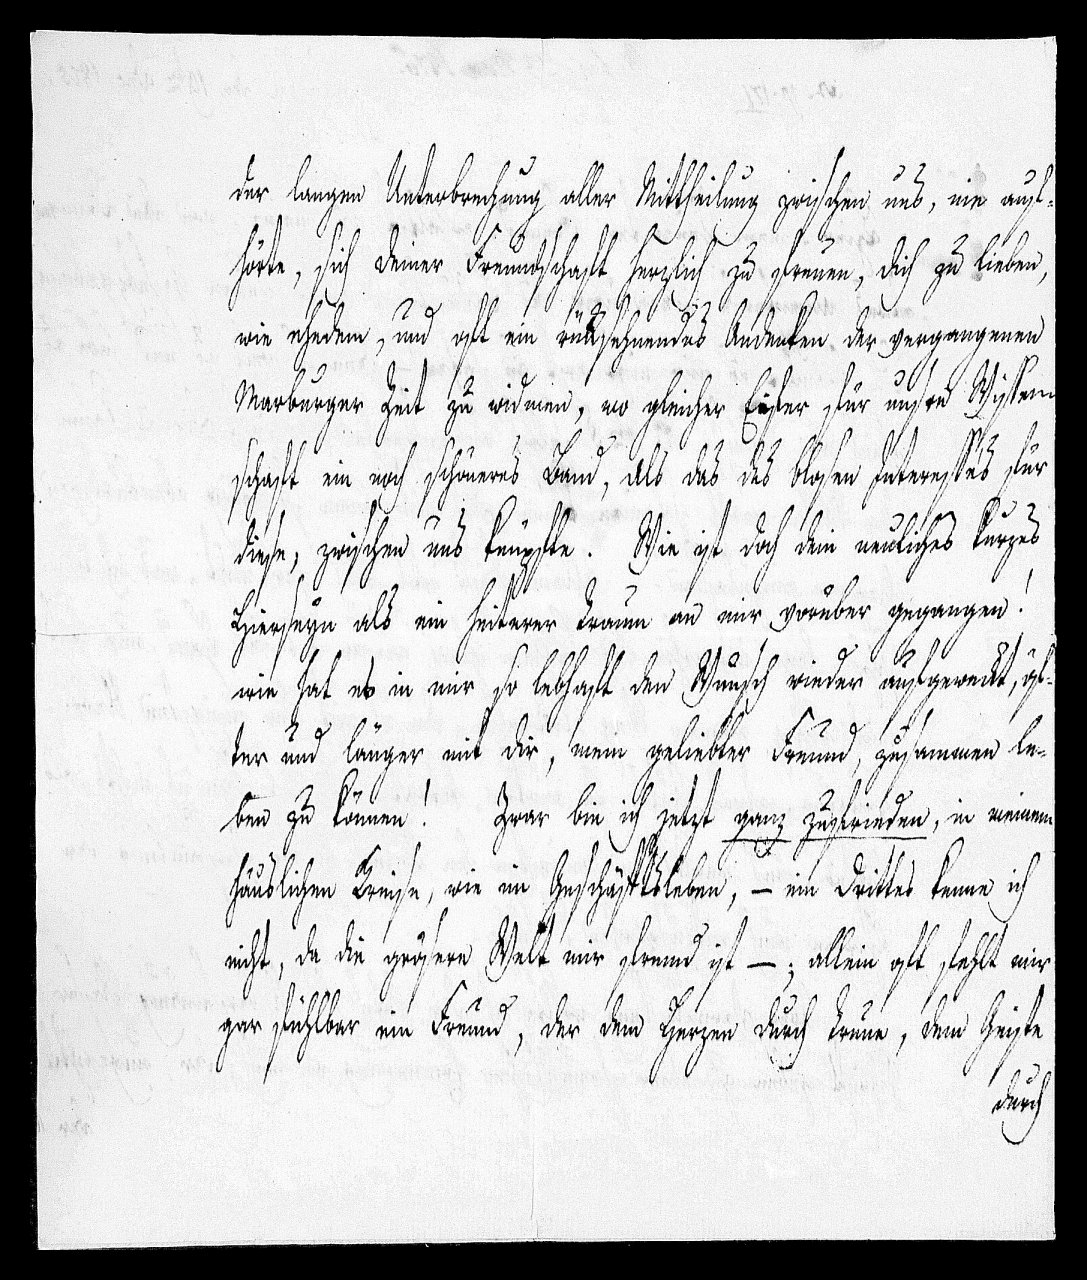 der langen Unterbrechung aller Mittheilung zwischen uns, nie auf-
hörte, sich deiner Freundschaft herzlich zu freuen, dich zu lieben,
wie ehedem, und oft ein rücksehnendes Andenken der vergangenen
Marburger Zeit zu widmen, wo gleicher Eifer für unsre Wissen
schaft ein noch schöneres Band, als das des blosen Interesses für
diese, zwischen uns knüpfte. Wie ist doch dein neuliches kurzes
Hierseyn als ein heiterer Traum an mir vorüber gegangen!
wie hat es in mir so lebhaft den Wunsch wieder aufgeweckt, öf-
ter und länger mit dir, mein geliebter Freund, zusammen le-
ben zu können! Zwar bin ich jetzt ganz zufrieden, in meinem
häuslichen Kreise, wie im Geschäftsleben, — ein Drittes kenne ich
nicht, da die grösere Welt mir fremd ist —; allein oft fehlt mir
gar fühlbar ein Freund, der dem Herzen durch Treue, dem Geiste
durch